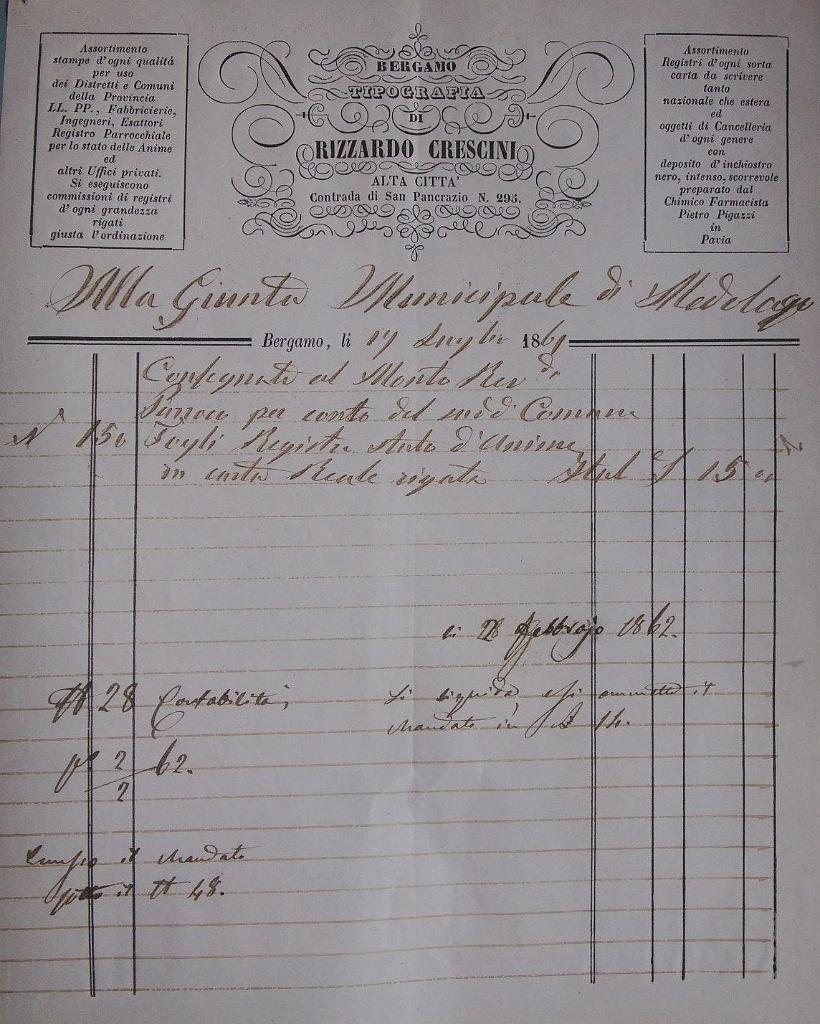 Assortimento
stampe d'ogni qualità
per uso
dei Distretti e Comuni
della Provincia
LL. PP., Fabbricierie,
Ingegneri, Esattori
Registro Parrocchiale
per lo stato delle Anime
ed
altri Uffici privati.
Si eseguiscono
commissioni di registri
d'ogni grandezza
rigati
giusta l'ordinazione
BERGAMO
TIPOGRAFIA
DI
RIZZARDO CRESCINI
ALTA CITTA'
Contrada di San Pancrazio N. 295.
Assortimento
Registri d'ogni sorta
carta da scrivere
tanto
nazionale che estera
ed
oggetti di Cancelleria
d'ogni genere
con
deposito d'inchiostro
nero, intenso, scorrevole
preparato dal
Chimico Farmacista
Pietro Pigazzi
in
Pavia
Alla Giunta Municipale di Medolago
Bergamo, li 17 Luglio 1861
Consegnate al Molto Revdo
Parroco per conto del sudd Comune
N 150 Fogli Registri Stato d'Anime
in carta Reale rigata 15
li 28 febbrajo 1862.
28 Contabilità
Si liquida ammette il
Mandato in 14.
2 62.
2
il Mandato
sotto il 48.